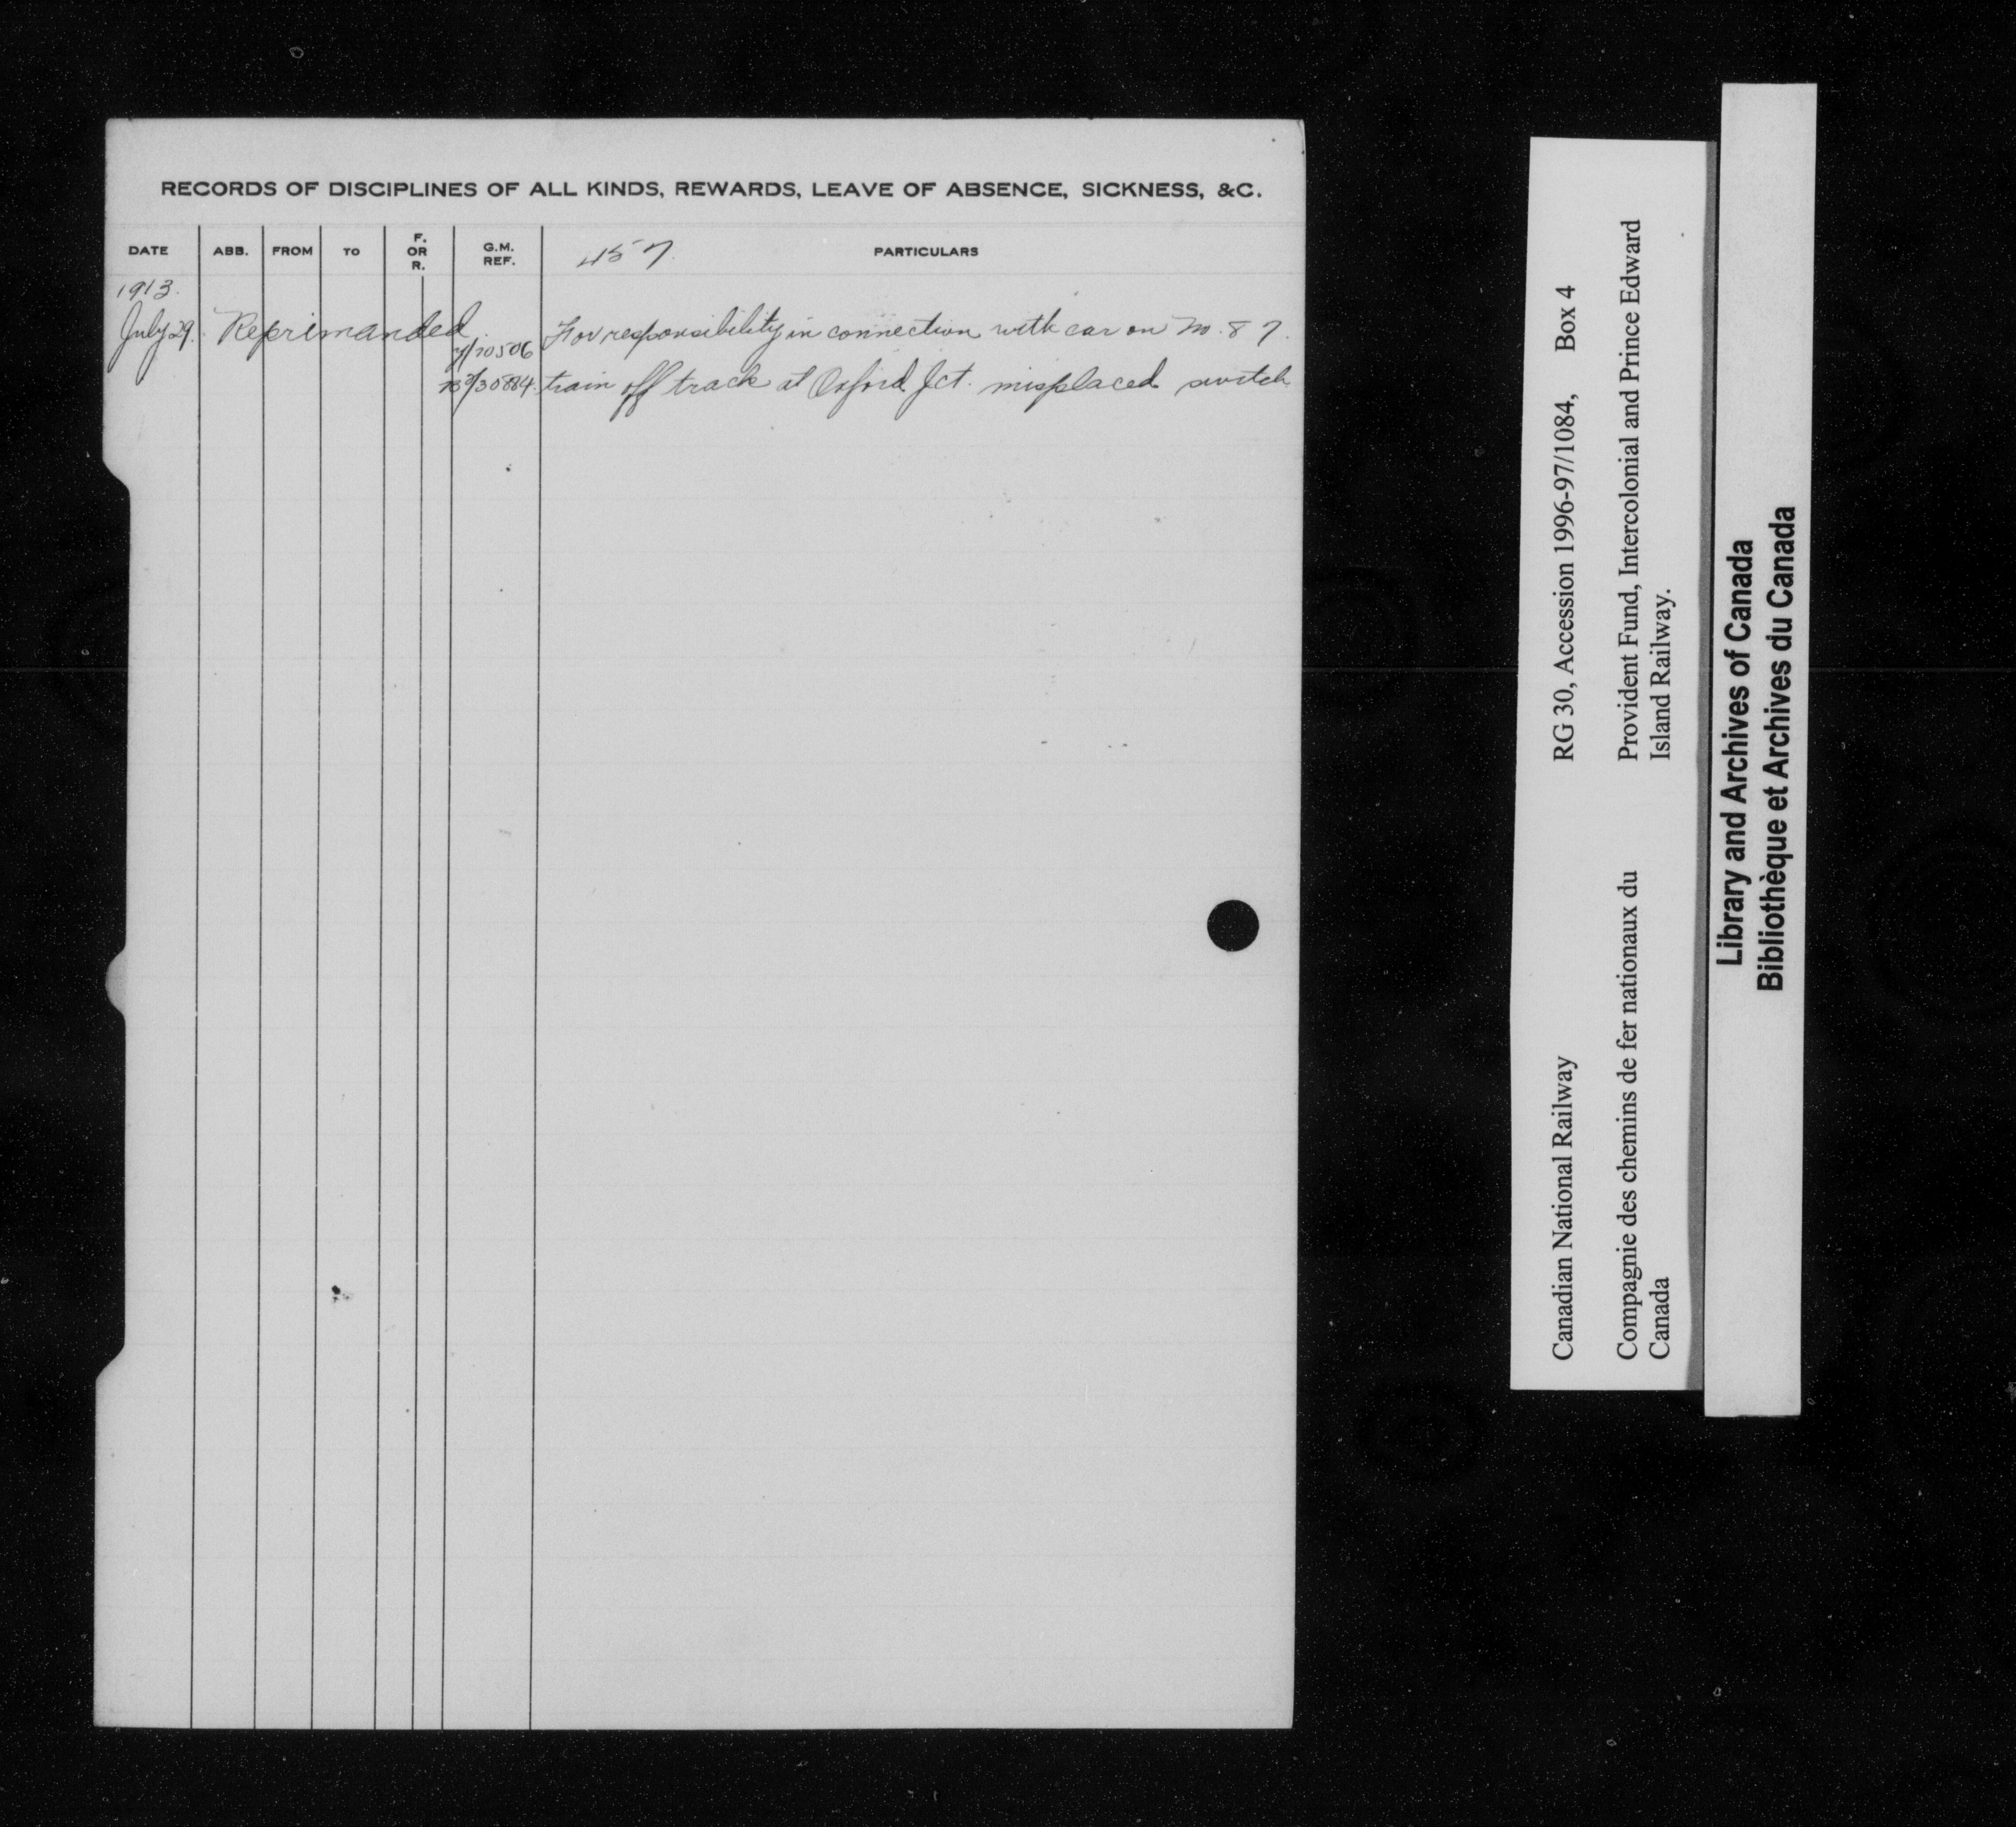 RECORDS OF DISCIPLINES OF ALL KINDS, REWARDS, LEAVE OF ABSENCE, SICKNESS, &C.
DATE ABB. FROM TO F. OR R. G.M. REF. 457. PARTICULARS
1913.
July 29. Reprimanded For responsibility in connection with car on No. 87.
/70506
/30884. train off track at Oxford Jct. misplaced switch
Canadian National Railway RG 30, Accession 1996-97/1084, Box 4
Compagnie des chemins de fer nationaux du Provident Fund, Intercolonial and Prince Edward
Canada Island Railway.
Library and Archives of Canada
Bibliothèque et Archives du Canada